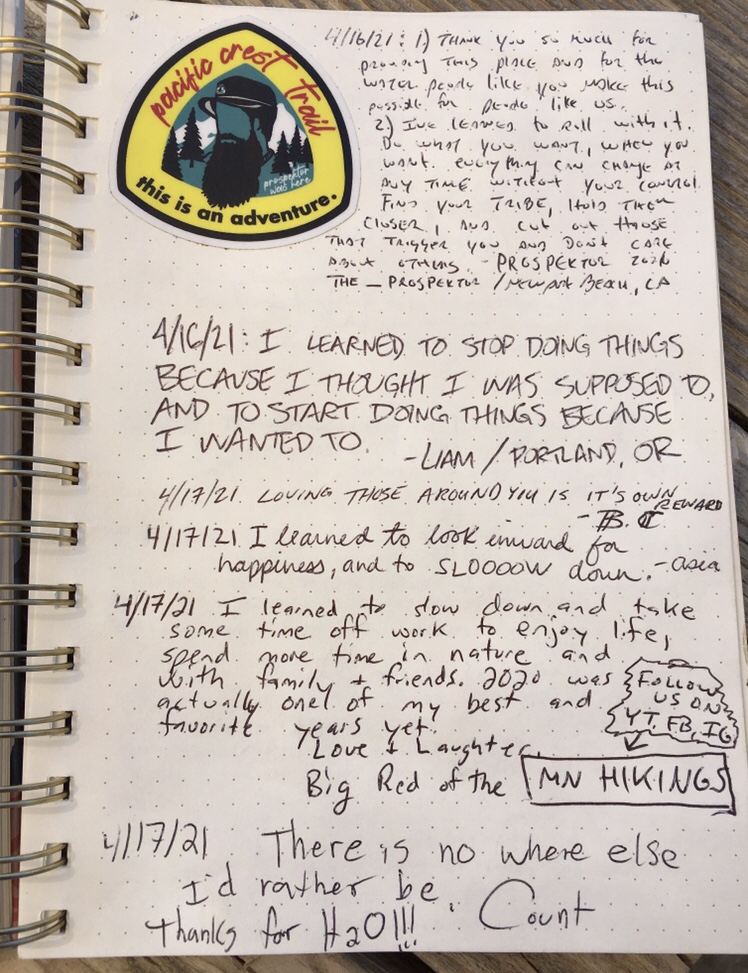 pacific crest trail
prospektor
was here
this is an adventure.
4/16/21: 1) THANK YOU SO MUCH FOR
providing THIS PLACE AND FOR the
WATER. people like you MAKE this
possible for people like us.
2.) I've LEARNED to Roll with it.
Do WHAT YOU WANT, WHEN YOU
WANT. everything CAN CHANGE AT
ANY TIME WITHOUT YOUR CONTROL.
FIND YOUR TRIBE, HOLD THEM
CLOSER, AND CUT OUT those
THAT TRIGGER YOU AND DON'T CARE
ABOUT OTHERS. - PROSPEKTOR
THE _ PROSPEKTOR / NEWPORT BEACH, CA
4/16/21: I LEARNED TO STOP DOING THINGS
BECAUSE I THOUGHT I WAS SUPPOSED TO,
AND TO START DOING THINGS BECAUSE
I WANTED TO.
-LIAM / PORTLAND, OR
4/17/21 LOVING THOSE AROUND YOU IS IT'S OWN
REWARD
- B.C
4/17/21 I learned to look inward for
happiness, and to SLOOOOW down. - asia
4/17/21 I learned to slow down and take
some time off work to enjoy life,
spend more time in nature and
with family + friends. 2020 was
actually one of my best and
favorite years yet.
Love + Laughter,
Big Red of the MN HIKINGS
FOLLOW
US ON
YT, FB, IG
4/17/21 There is no where else
I'd rather be
Thanks for H2O!!! Count